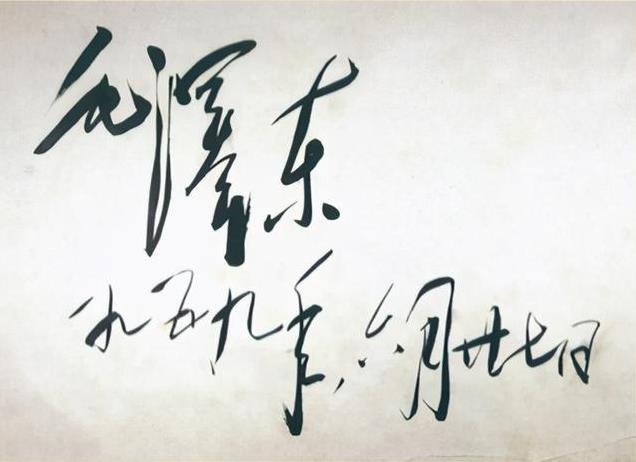 毛泽东
一九五九年,六月廿七日